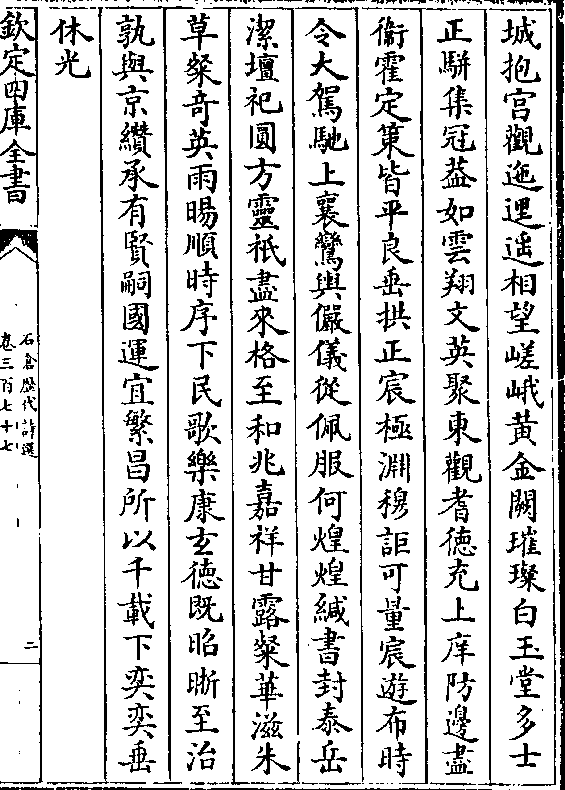 城抱宫觀迤逦遥相望嵯峨黄金闕璀璨白玉堂多士
正駢集冠葢如雲翔文英聚東觀耆徳充上庠防邊盡
衞霍定策皆平良垂拱正宸極淵穆詎可量宸遊布時
令大駕馳上襄鸞輿儼儀從佩服何煌煌緘書封泰岳
潔壇祀圓方靈祇盡來格至和兆嘉祥甘露粲華滋朱
草粲竒英雨暘順時序下民歌樂康玄徳既昭晣至治
孰與京纘承有賢嗣國運宜繁昌所以千載下奕奕垂
休光
欽定四庫全書
石倉歷代詩選
卷三百七十七
二